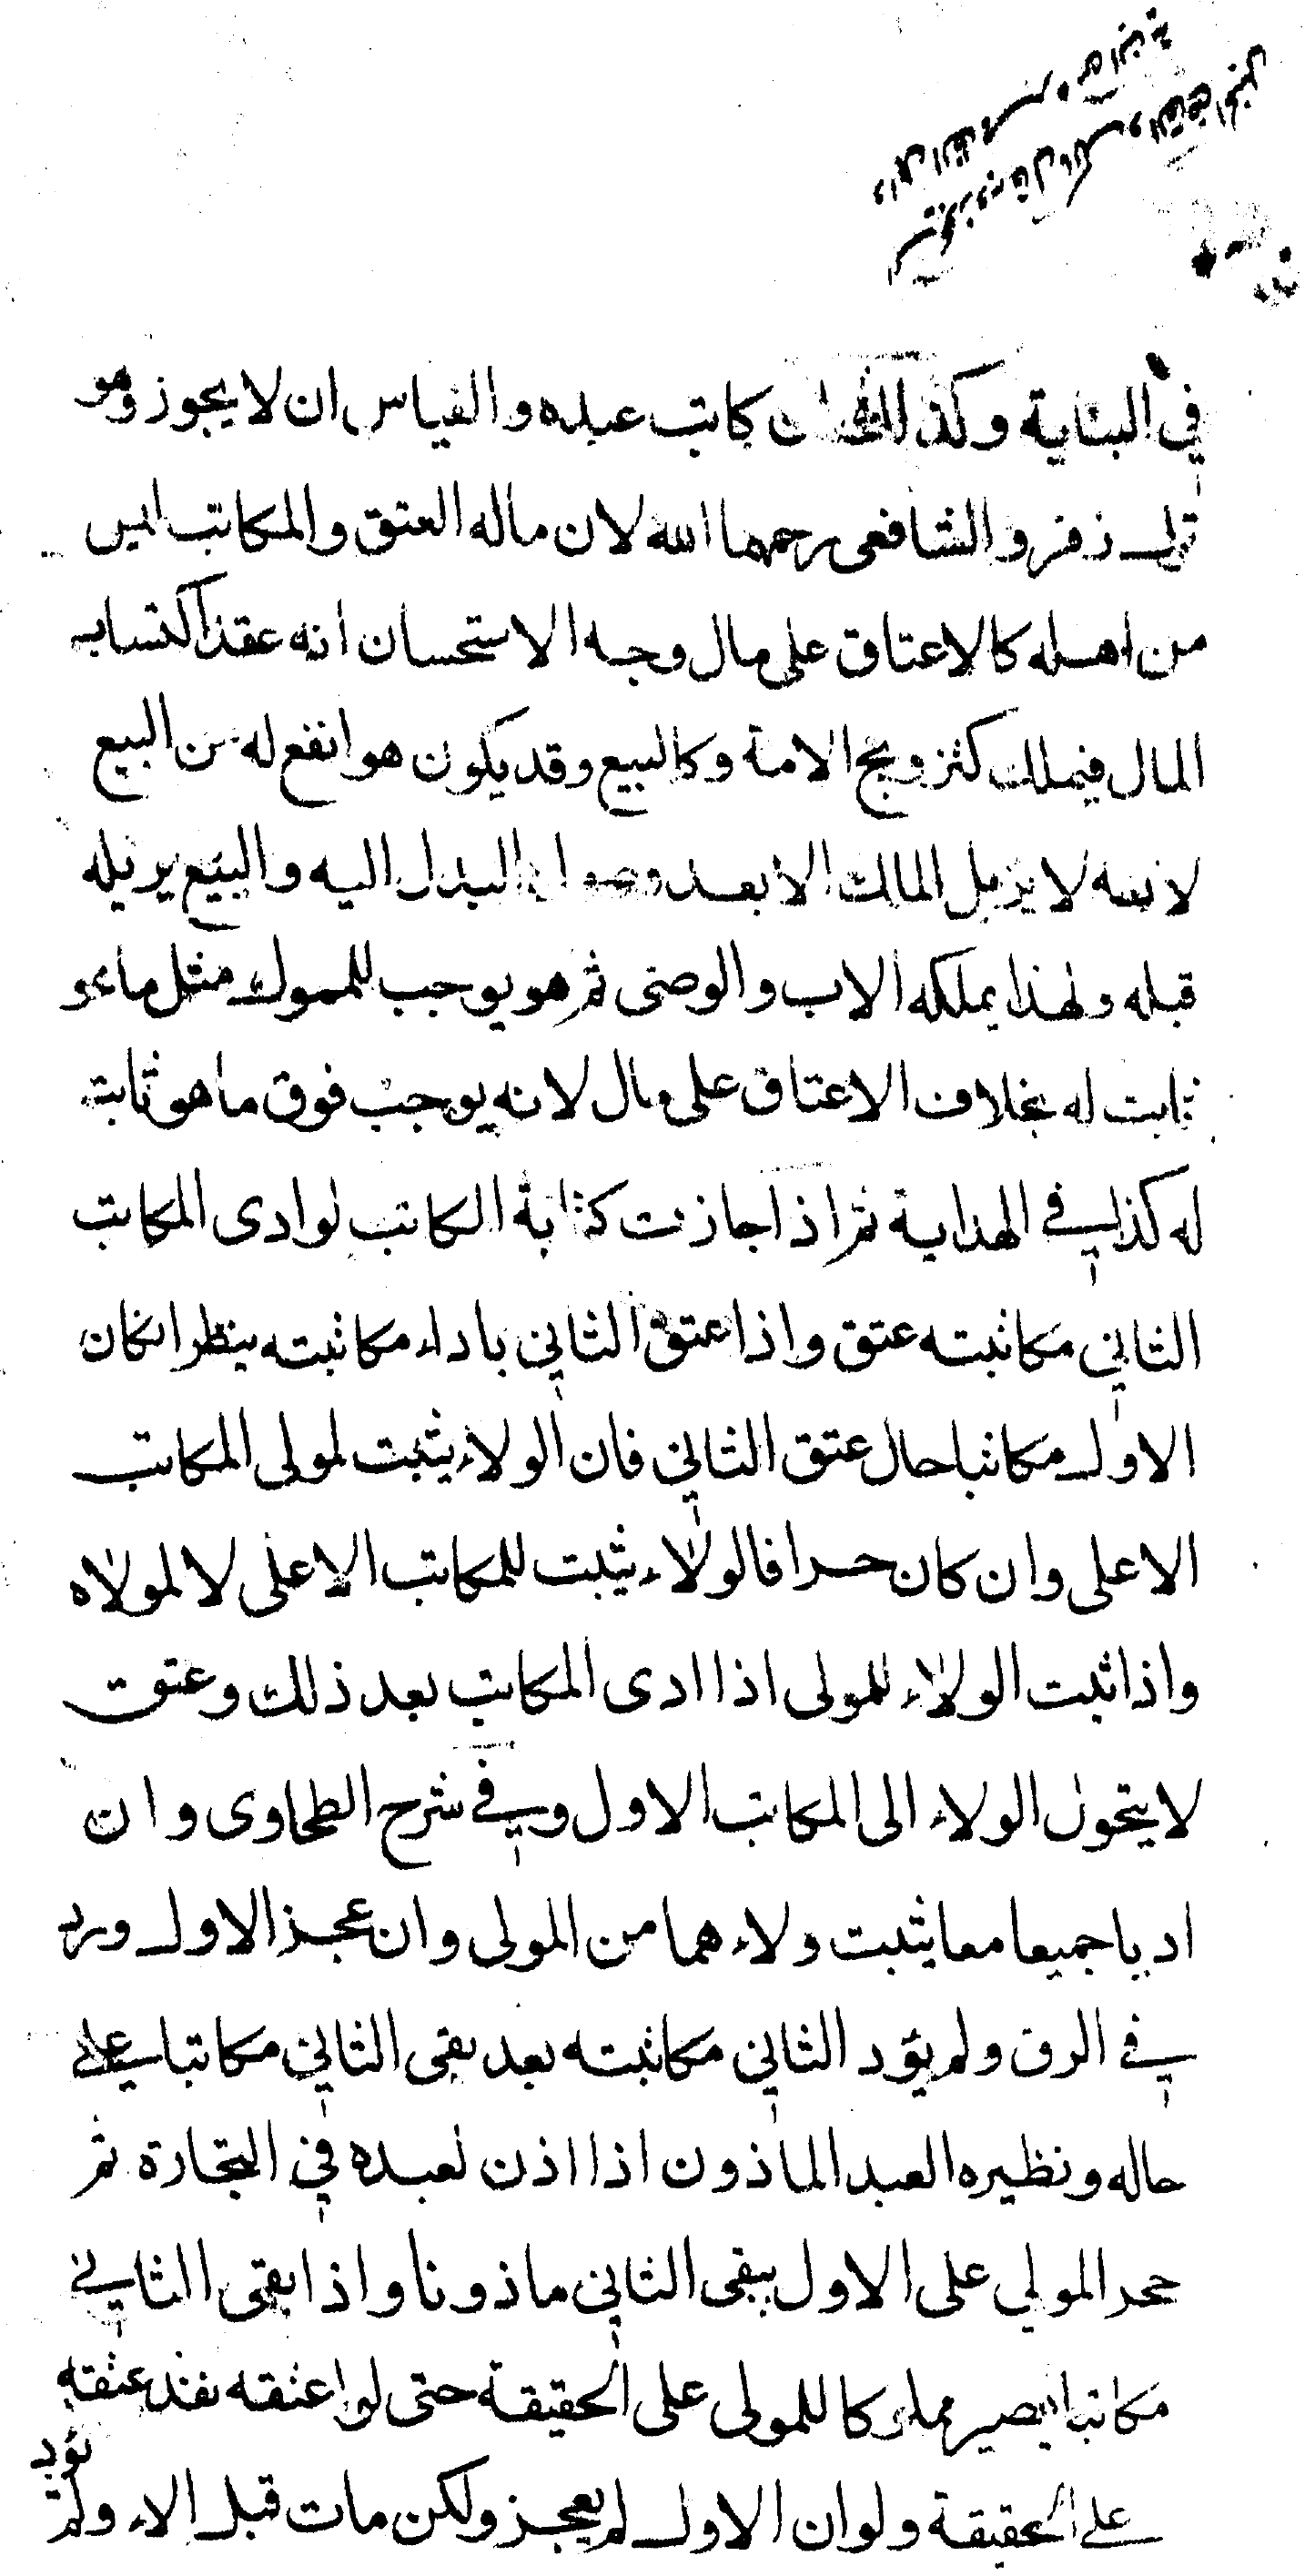 في البناية وكذلك ان كاتب عبده والقياس ان لا يجوز وهو
قول زفر والشافعي رحمهما الله لان ماله العتق والمكاتب ليس
من اهله كالاعتاق على مال وجه الاستحسان انه عقد اكتساب
المال فيملك كتزويج الامة وكالبيع وقد يكون هو انفع له من البيع
لانه لا يزيل الملك الا بعد وصول البدل اليه والبيع يزيله
قبله ولهذا يملكه الاب والوصى ثم هو يوجب للمملوك مثل ما هو
ثابت له بخلاف الاعتاق على مال لانه يوجب فوق ما هو ثابت
له كذا في الهداية ثم اذا جازت كتابة المكاتب لو ادى المكاتب
الثاني مكاتبته عتق واذا عتق الثاني باداء مكاتبته ينظر ان كان
الاول مكاتبا حال عتق الثاني فان الولاء يثبت لمولى المكاتب
الاعلى وان كان حرا فالولاء يثبت للمكاتب الاعلى لا لمولاه
واذا ثبت الولاء للمولى اذا ادى المكاتب بعد ذلك وعتق
لا يتحول الولاء الى المكاتب الاول وفي شرح الطحاوى وان
اديا جميعا معا يثبت ولاءهما من المولى وان عجز الاول ورد
في الرق ولم يؤد الثاني مكاتبته بعد بقى الثاني مكاتبا على
حاله ونظيره العبد الماذون اذا اذن لعبده في التجارة ثم
حجر المولي على الاول يبقى الثاني ماذونا واذا بقى الثاني
مكاتبا يصير مملوكا للمولى على الحقيقة حتى لو اعتقه نفذ عتقه
على الحقيقة ولو ان الاول لم يعجز ولكن مات قبل الاداء ولم يؤد